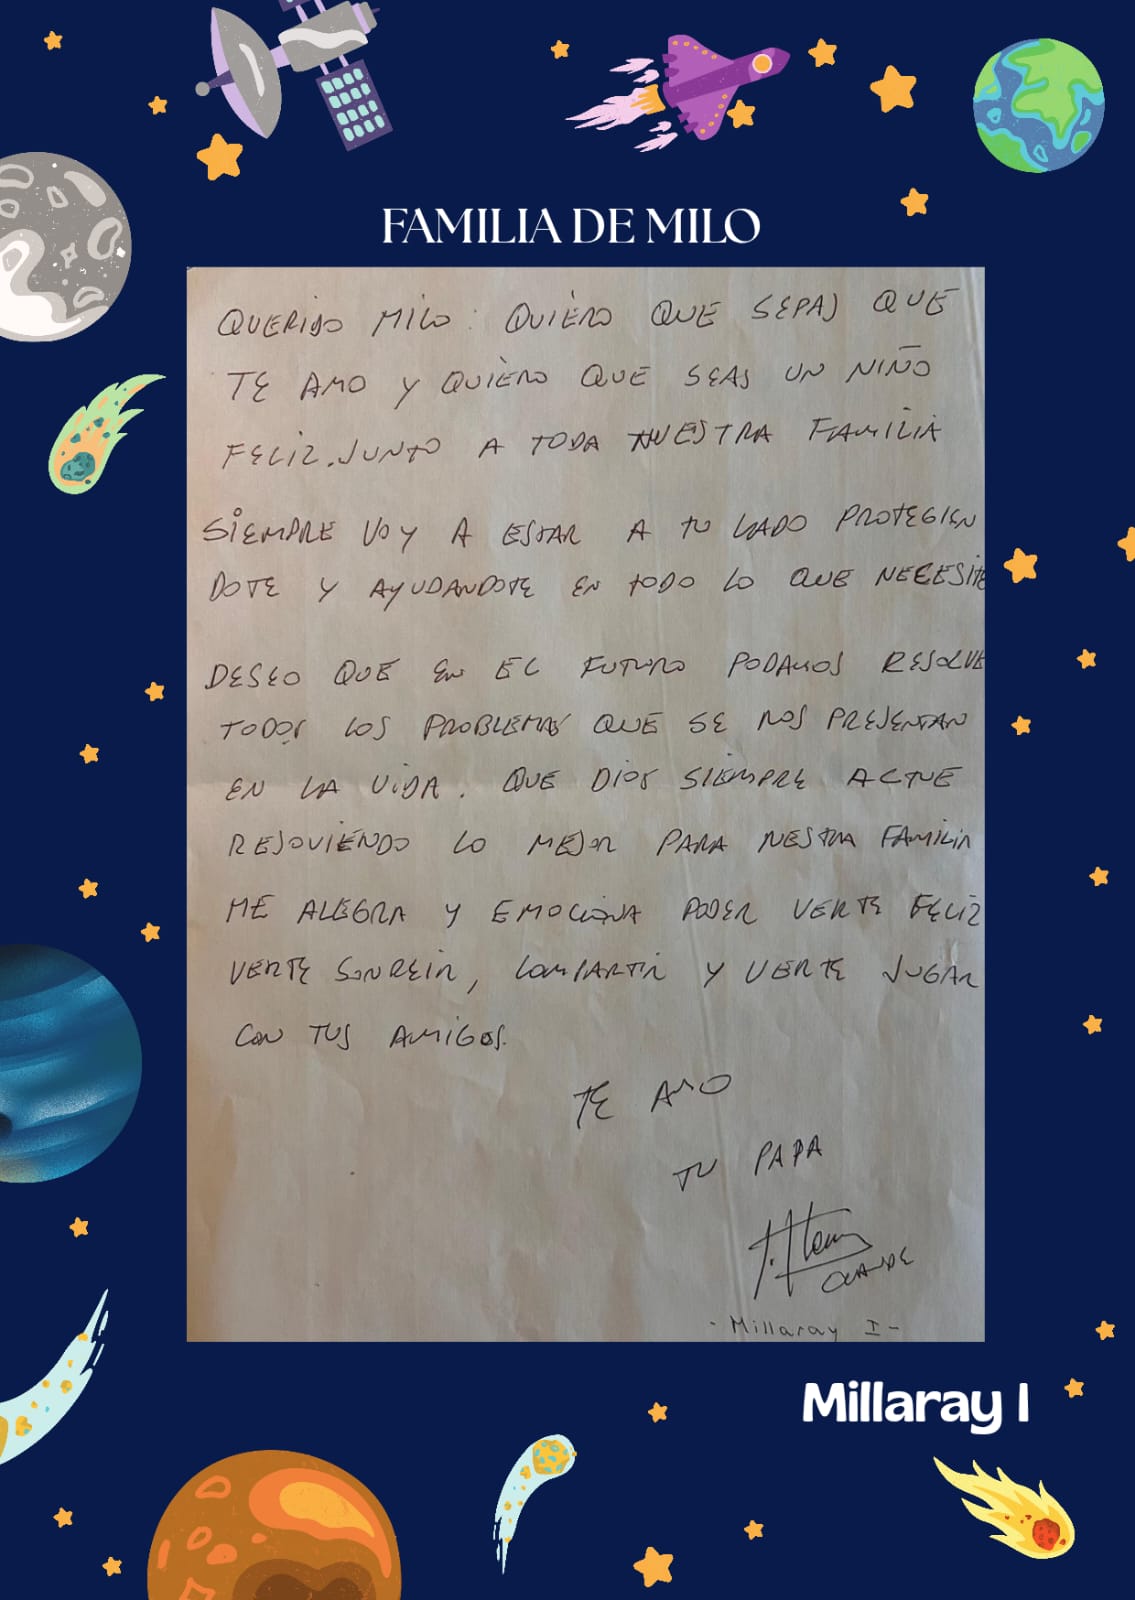 FAMILIA DE MILO
QUERIDO MILO: QUIERO QUE SEPAS QUE
TE AMO Y QUIERO QUE SEAS UN NIÑO
FELIZ. JUNTO A TODA NUESTRA FAMILIA
SIEMPRE VOY A ESTAR A TU LADO PROTEGIEN
DOTE Y AYUDANDOTE EN TODO LO QUE NECESITE
DESEO QUE EN EL FUTURO PODAMOS RESOLVE
TODOS LOS PROBLEMAS QUE SE NOS PRESENTAN
EN LA VIDA. QUE DIOS SIEMPRE ACTUE
RESOVIENDO LO MEJOR PARA NESTRA FAMILIA
ME ALEGRA Y EMOCIONA PODER VERTE FELIZ
VERTE SONREIR, COMPARTIR Y VERTE JUGAR
CON TUS AMIGOS.
TE AMO
TU PAPA
- Millaray I -
Millaray I